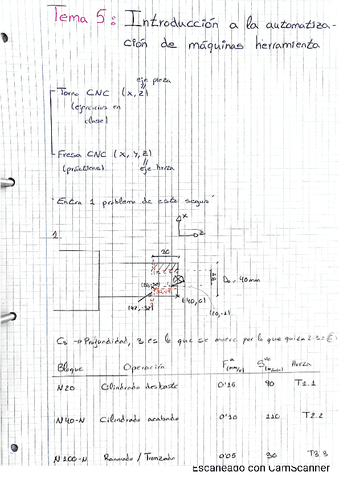 Tema 5: Introducción a la automatiza-
ción de máquinas herramienta
eje pieza
Torno CNC (x, z)
(ejercicios en
clase)
Fresa CNC (x, y, z)
(prácticas)
"Entra 1 problema de este seguro"
x
z
1.
20
D₀ = 40mm
(-40, 6)
Profundidad, z es lo que se mueve por lo que
Bloque Operación F S Hzta
N20 Cilindrado desbaste 0'16 90 T1.1
N40-N Cilindrado acabado 0'10 110 T2.2
N100-N Ranurado / Tronzado 0'05 30 T3.3
Escaneado con CamScanner